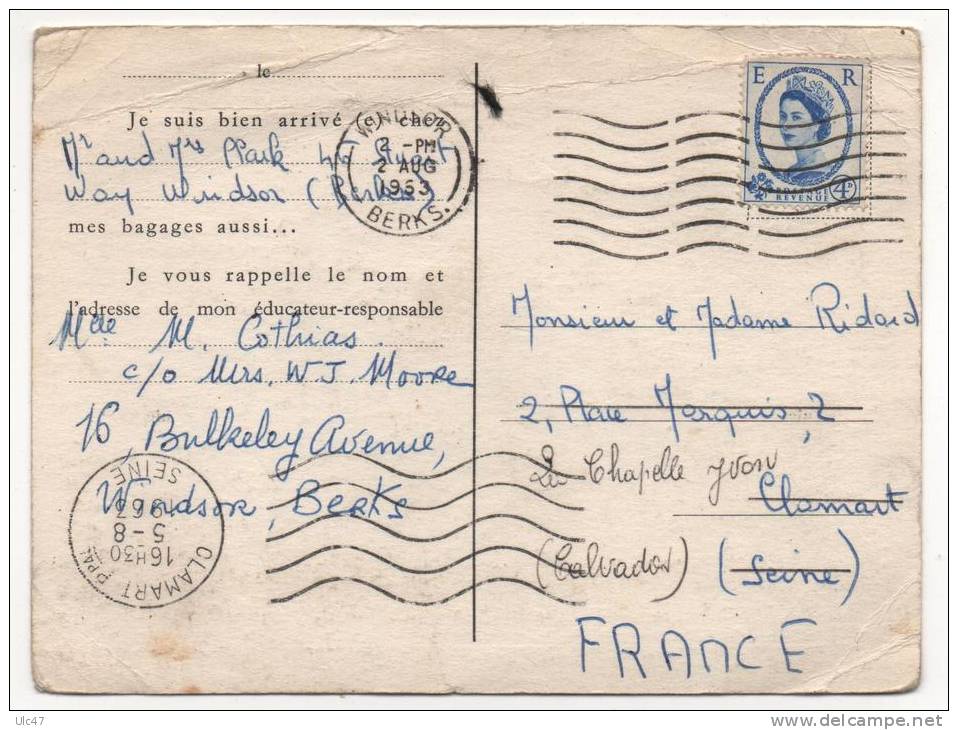 le
Je suis bien arrivé (e) chez
Mr and Mrs Park 46 Stuart
Way Windsor (Berks)
mes bagages aussi...
Je vous rappelle le nom et
l'adresse de mon éducateur-responsable
Mlle M. Cothias.
c/o Mrs. W J. Moore
16, Bulkeley Avenue,
Windsor, Berks
WINDSOR
2 - PM
2 AUG
1963
BERKS.
E R
POSTAGE 4D
REVENUE
Monsieur et Madame Ridard
2, Place Marquis, 2
La Chapelle Yvon
Clamart
(Calvados) (Seine)
FRANCE
CLAMART PPAL
16H30
5-8
1963
SEINE
Ulc47
www.delcampe.net